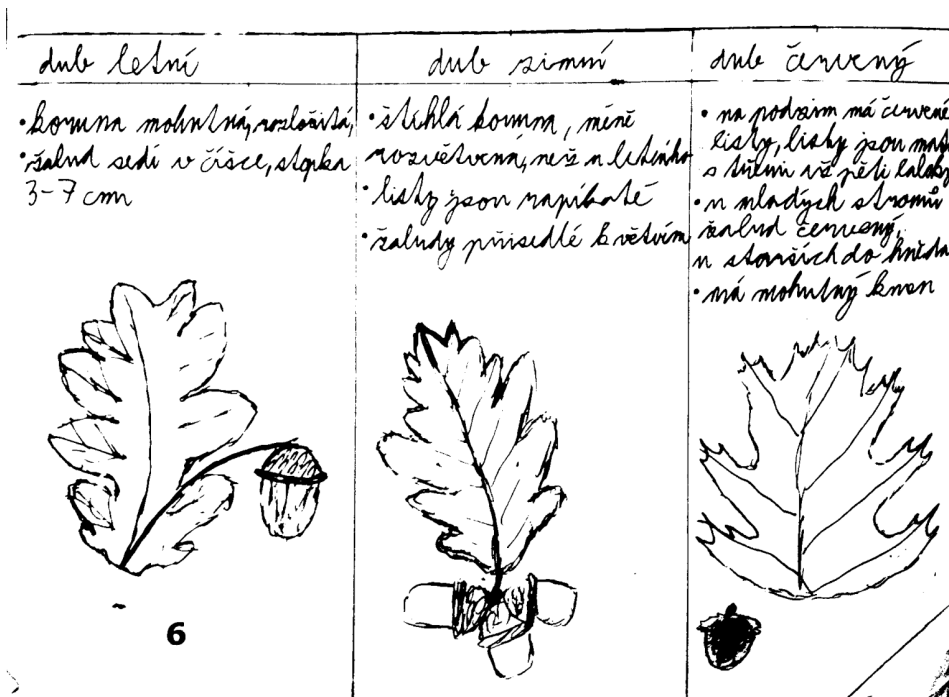 dub letní
• koruna mohutná, rozložitá,
• žalud sedí v číšce, stopka
3-7 cm
dub zimní
• štíhlá koruna, méně
rozvětvená, než u letního
• listy jsou řapíkaté
• žaludy přisedlé k větvím
dub červený
• na podzim má červené
listy, listy jsou mají
s třemi až pěti laloky
• u mladých stromů
žalud červený,
u starších do hněda
• má mohutný kmen
6